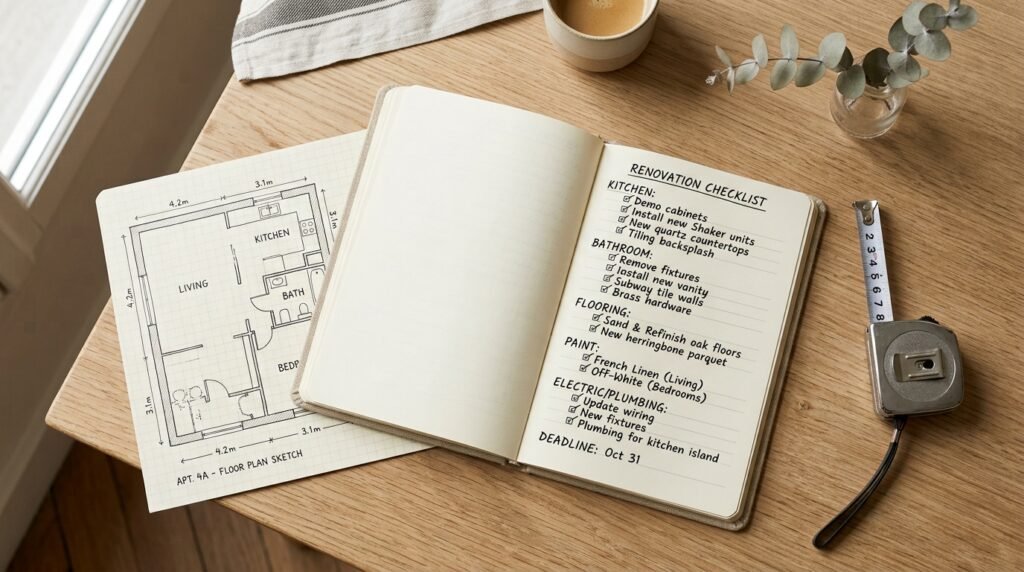 4.2m
3.1m
3.1m
KITCHEN
LIVING
BATH
4.2m
BEDR
3.1m
4.2m
3.1m
APT. 4A - FLOOR PLAN SKETCH
RENOVATION CHECKLIST
KITCHEN:
Demo cabinets
Install new Shaker units
New quartz countertops
Tiling backsplash
BATHROOM:
Remove fixtures
Install new vanity
Subway tile walls
Brass hardware
FLOORING:
Sand & Refinish oak floors
New herringbone parquet
PAINT:
French Linen (Living)
Off-White (Bedrooms)
ELECTRIC/PLUMBING:
Update wiring
New fixtures
Plumbing for kitchen island
DEADLINE: Oct 31
2
3
4
5
6
7
8